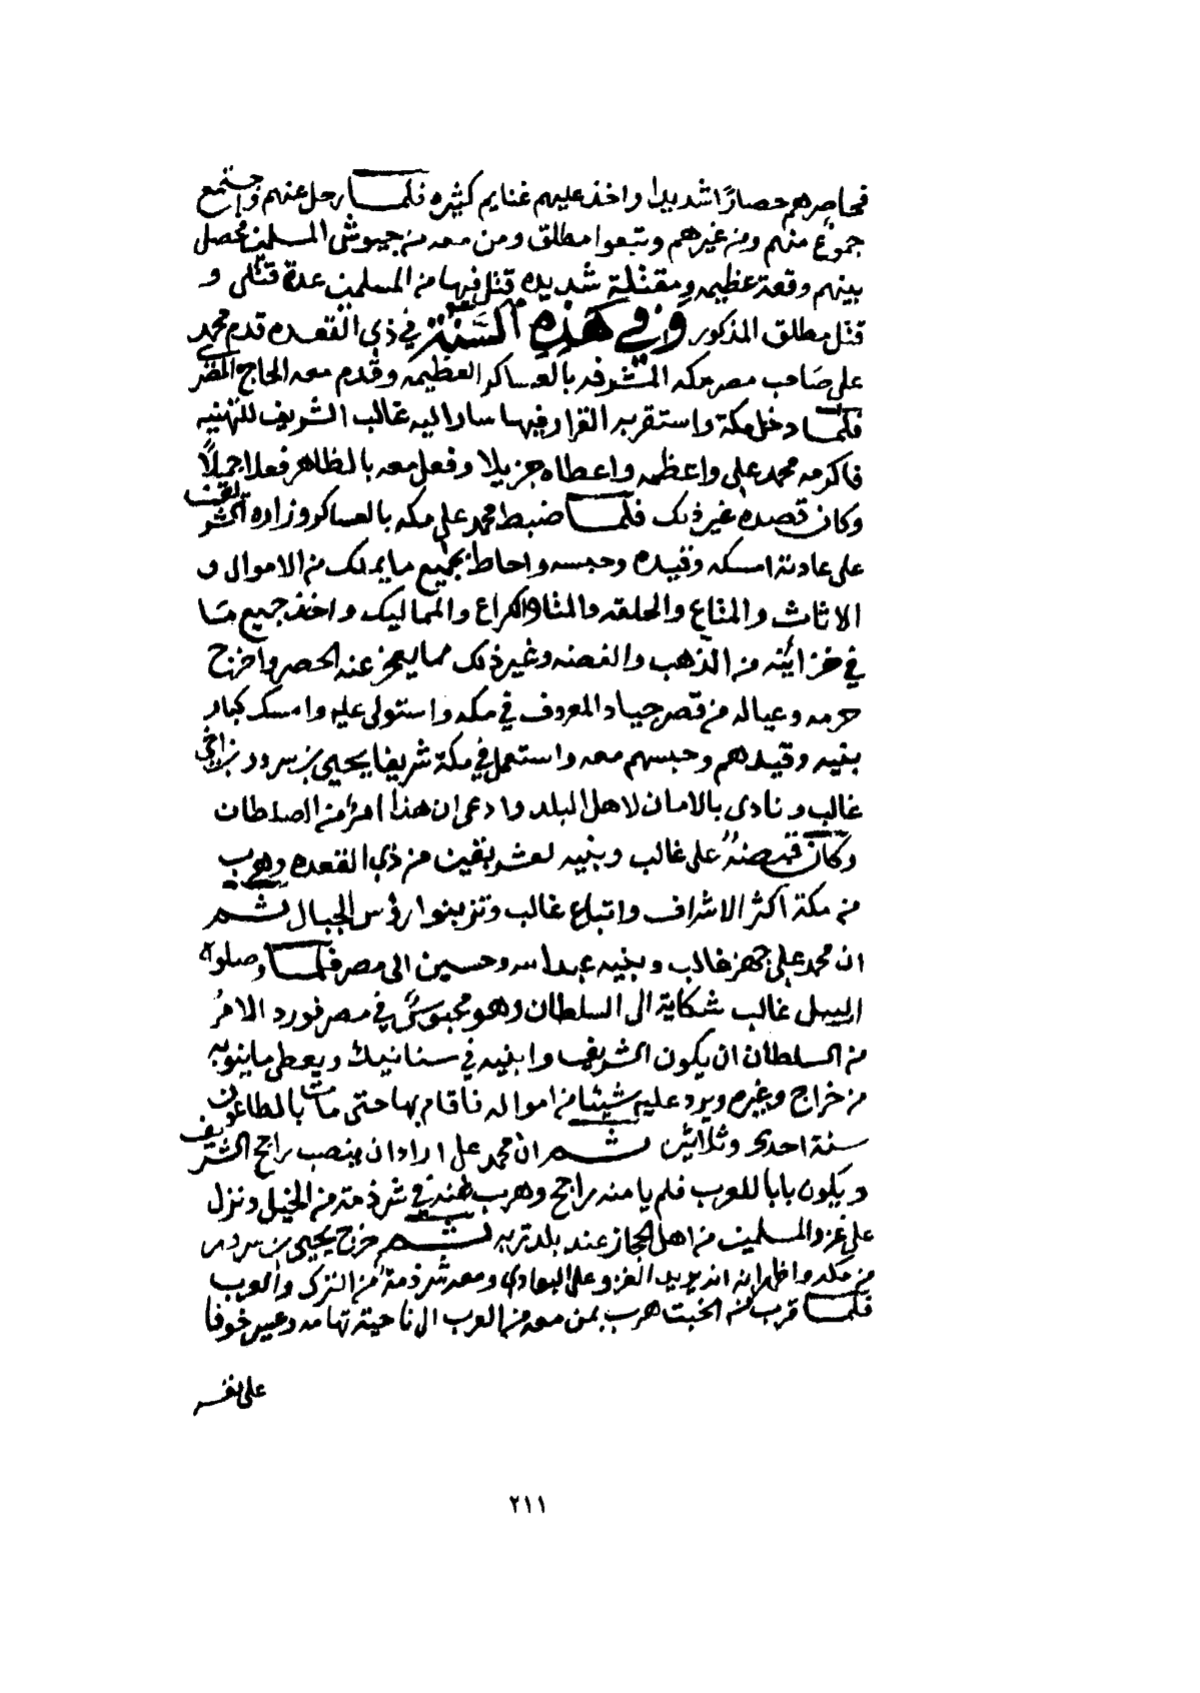 فحاصرهم حصارًا شديدا واخذ عليهم غنايم كثيره فلما رحل عنهم واجتمع
جموعٌ منهم ومن غيرهم وتبعوا مطلق ومن معه من جيوش المسلمين فحصل
بينهم وقعة عظيمه ومقتلة شديده قتل فيها من المسلمين عدة قتلى و
قتل مطلق المذكور وفي هذه السنة في ذي القعده قدم محمد
علي صاحب مصر مكه المشرفه بالعساكر العظيمه وقدم معه الحاج المصري
فلما دخل مكة واستقر به القرار فيها سار اليه غالب الشريف للتهنيه
فاكرمه محمد علي واعظمه واعطاه جزيلا وفعل معه بالظاهر فعلا جميلاً
وكان قصده غير ذلك فلما ضبط محمد علي مكه بالعساكر وزاره الشريف
على عادته امسكه وقيده وحبسه واحاط بجميع ما يملك من الاموال و
الاثاث والمتاع والحلقه والكراع والمماليك واخذ جميع ما
في خزاينه من الذهب والفضه وغير ذلك مما يعجز عنه الحصر واخرج
حرمه وعياله من قصر جياد المعروف في مكه واستولى عليه وامسك كبار
بنيه وقيدهم وحبسهم معه واستعمل في مكة شريفا يحيى بن سرور بن اخي
غالب ونادى بالامان لاهل البلد وادعى ان هذا امرٌ من السلطان
وكان قبضه على غالب وبنيه لعشر بقين من ذي القعده وهرب
من مكة اكثر الاشراف واتباع غالب وتزبنوا رؤس الجبال ثم
ان محمد علي جهز غالب وبنيه عبدالله وحسين الى مصر فلما وصلوا
ارسل غالب شكاية الى السلطان وهو محبوسٌ في مصر فورد الامرُ
من السلطان ان يكون الشريف وابنيه في سنانيك ويعطى ما ينوبه
من خراج وغيره ويرد عليه شيئا من امواله فاقام بها حتى مات بالطاعون
سنة احدى وثلاثين ثم ان محمد علي اراد ان ينصب راجح الشريف
ويكون بابا للعرب فلم يامنه راجح وهرب عنه في شرذمة من الخيل ونزل
على غزو المسلمين من اهل الحجاز عند بلد تربه ثم خرج يحيى بن سرور
من مكه واظهر انه يريد الغزو على البوادي ومعه شرذمةٌ من الترك والعرب
فلما قرب من الخبت هرب بمن معه من العرب الى ناحية تهامه وعسير خوفا
على نفسه
٢١١